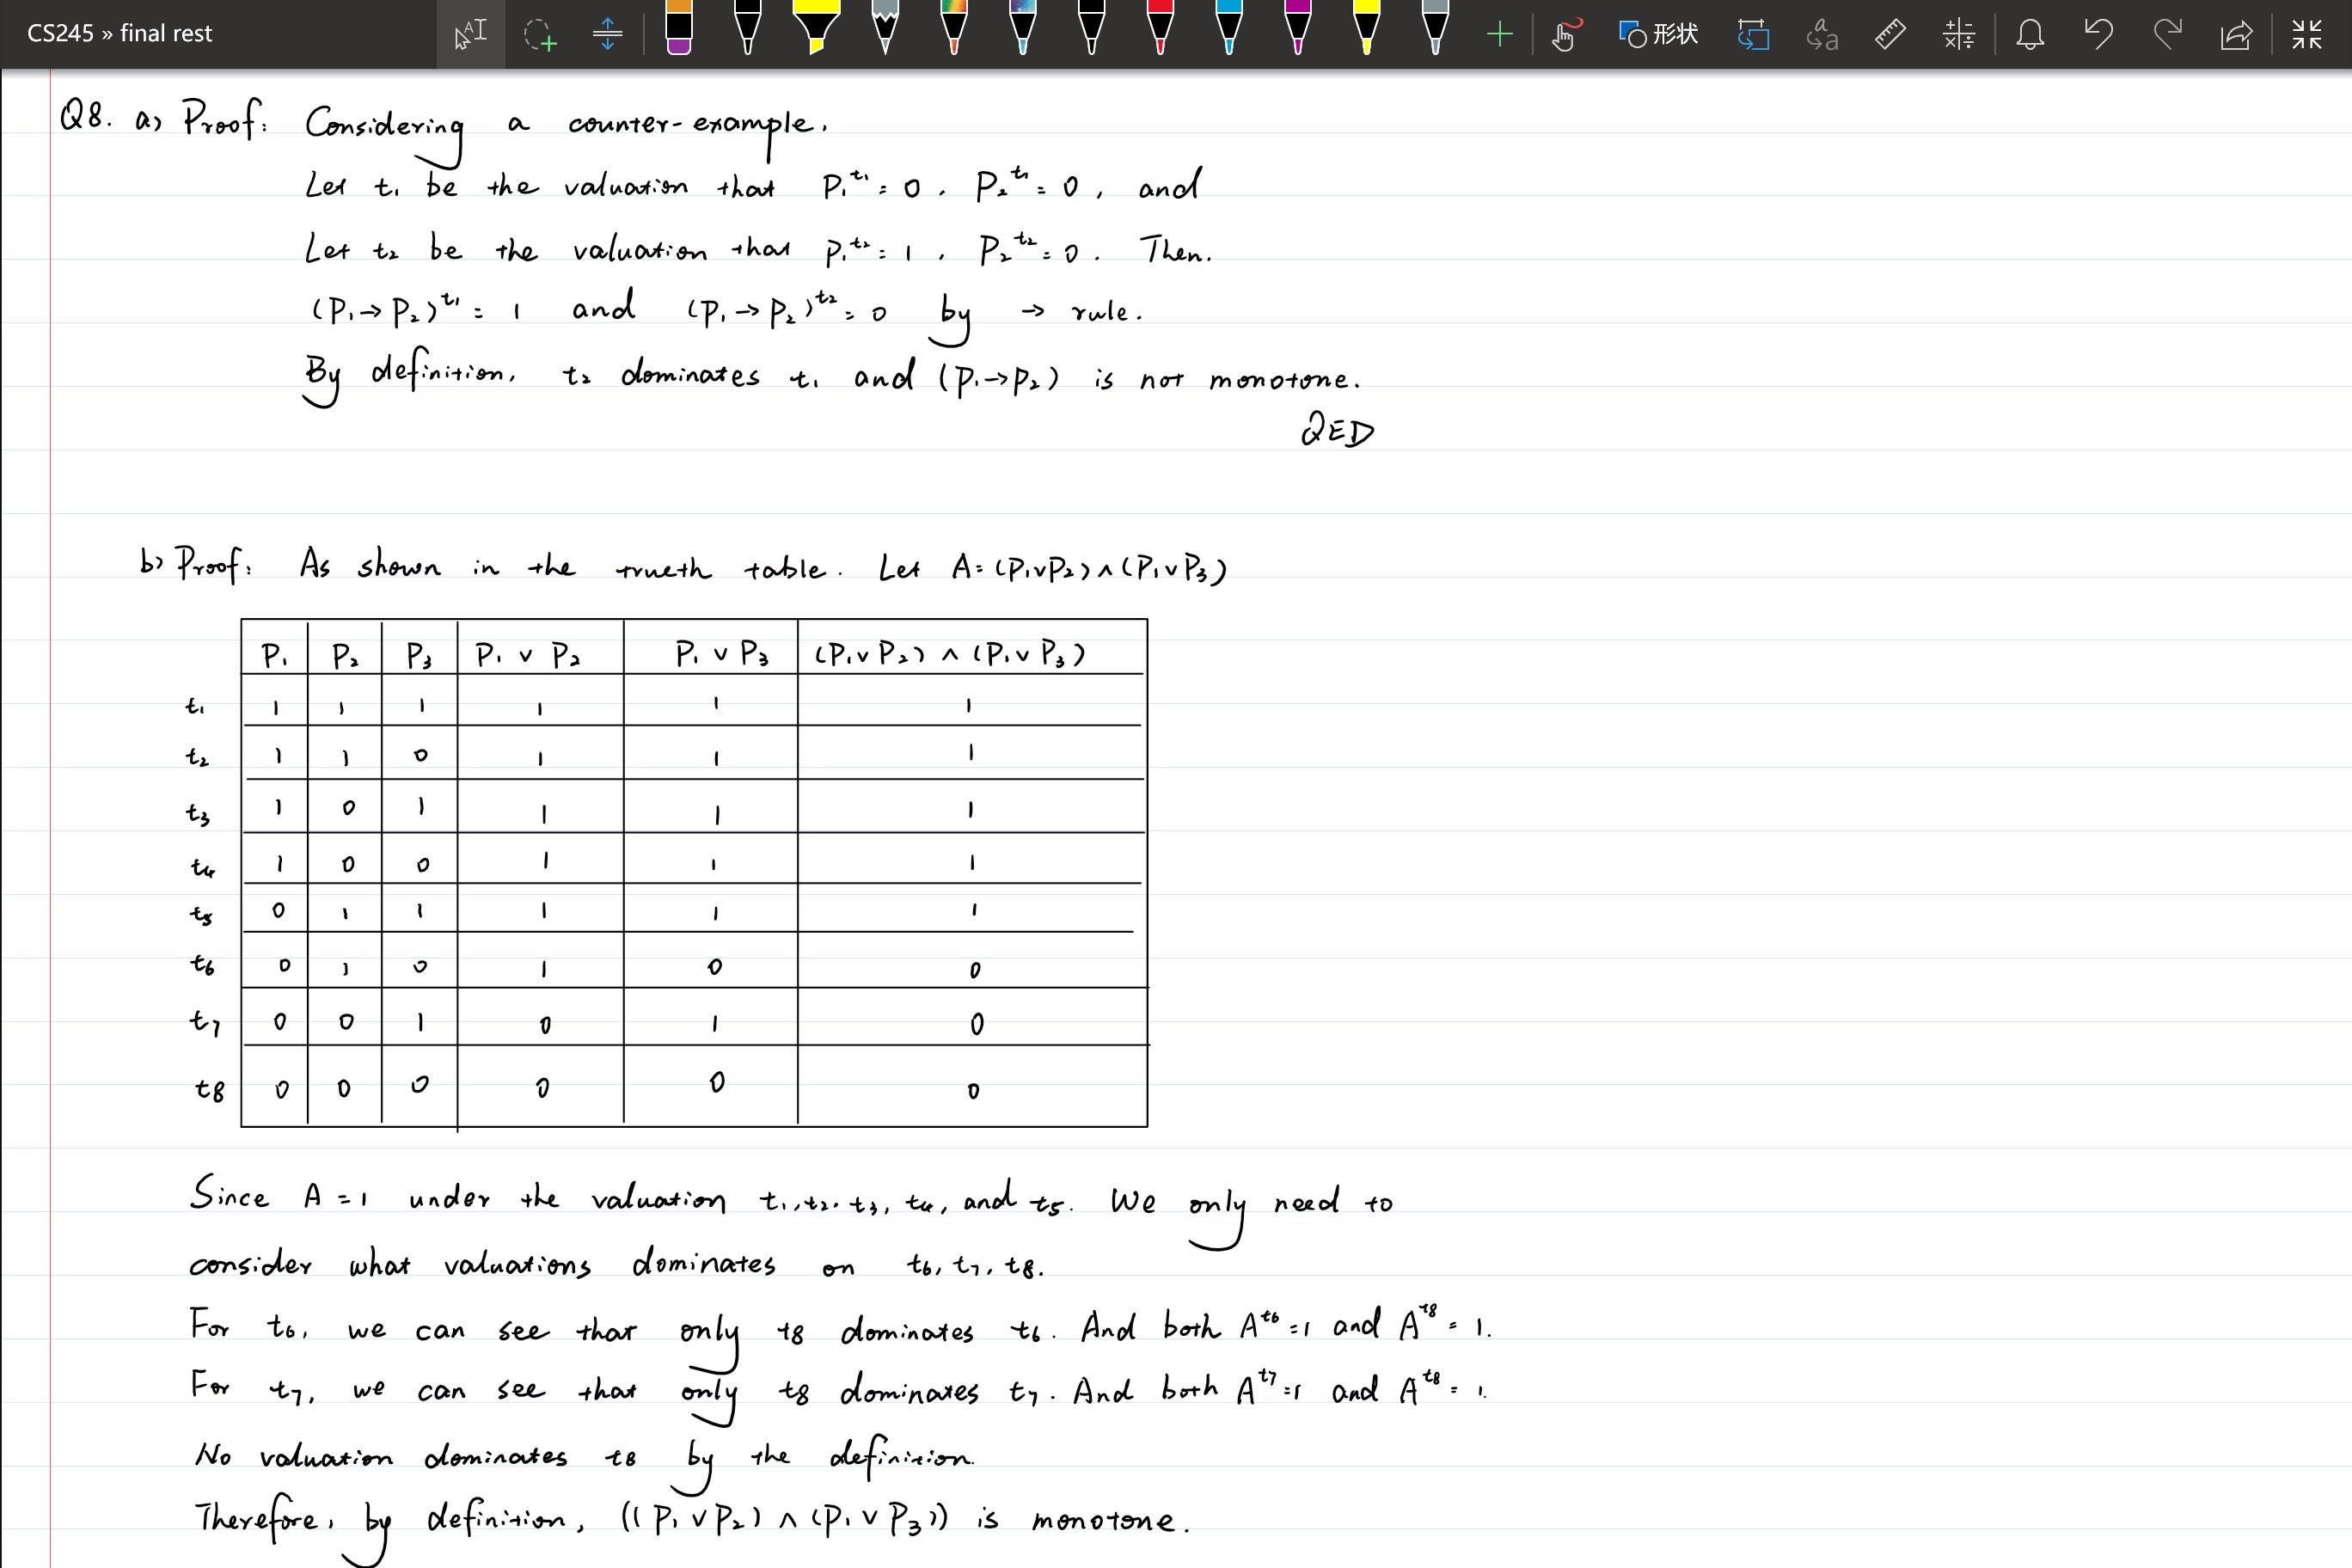 CS245 » final rest
形状
Q8. a) Proof: Considering a counter-example.
Let t₁ be the valuation that P₁^t₁ = 0, P₂^t₁ = 0, and
Let t₂ be the valuation that P₁^t₂ = 1, P₂^t₂ = 0. Then.
(P₁→P₂)^t₁ = 1 and (P₁→P₂)^t₂ = 0 by → rule.
By definition, t₂ dominates t₁ and (P₁→P₂) is not monotone.
QED
b) Proof: As shown in the trueth table. Let A = (P₁∨P₂)∧(P₁∨P₃)
P₁ P₂ P₃ P₁ ∨ P₂ P₁ ∨ P₃ (P₁∨P₂) ∧ (P₁∨P₃)
t₁ 1 1 1 1 1 1
t₂ 1 1 0 1 1 1
t₃ 1 0 1 1 1 1
t₄ 1 0 0 1 1 1
t₅ 0 1 1 1 1 1
t₆ 0 1 0 1 0 0
t₇ 0 0 1 0 1 0
t₈ 0 0 0 0 0 0
Since A = 1 under the valuation t₁, t₂, t₃, t₄, and t₅. We only need to
consider what valuations dominates on t₆, t₇, t₈.
For t₆, we can see that only t₈ dominates t₆. And both A^t₆ = 1 and A^t₈ = 1.
For t₇, we can see that only t₈ dominates t₇. And both A^t₇ = 1 and A^t₈ = 1.
No valuation dominates t₈ by the definition.
Therefore, by definition, ((P₁∨P₂)∧(P₁∨P₃)) is monotone.